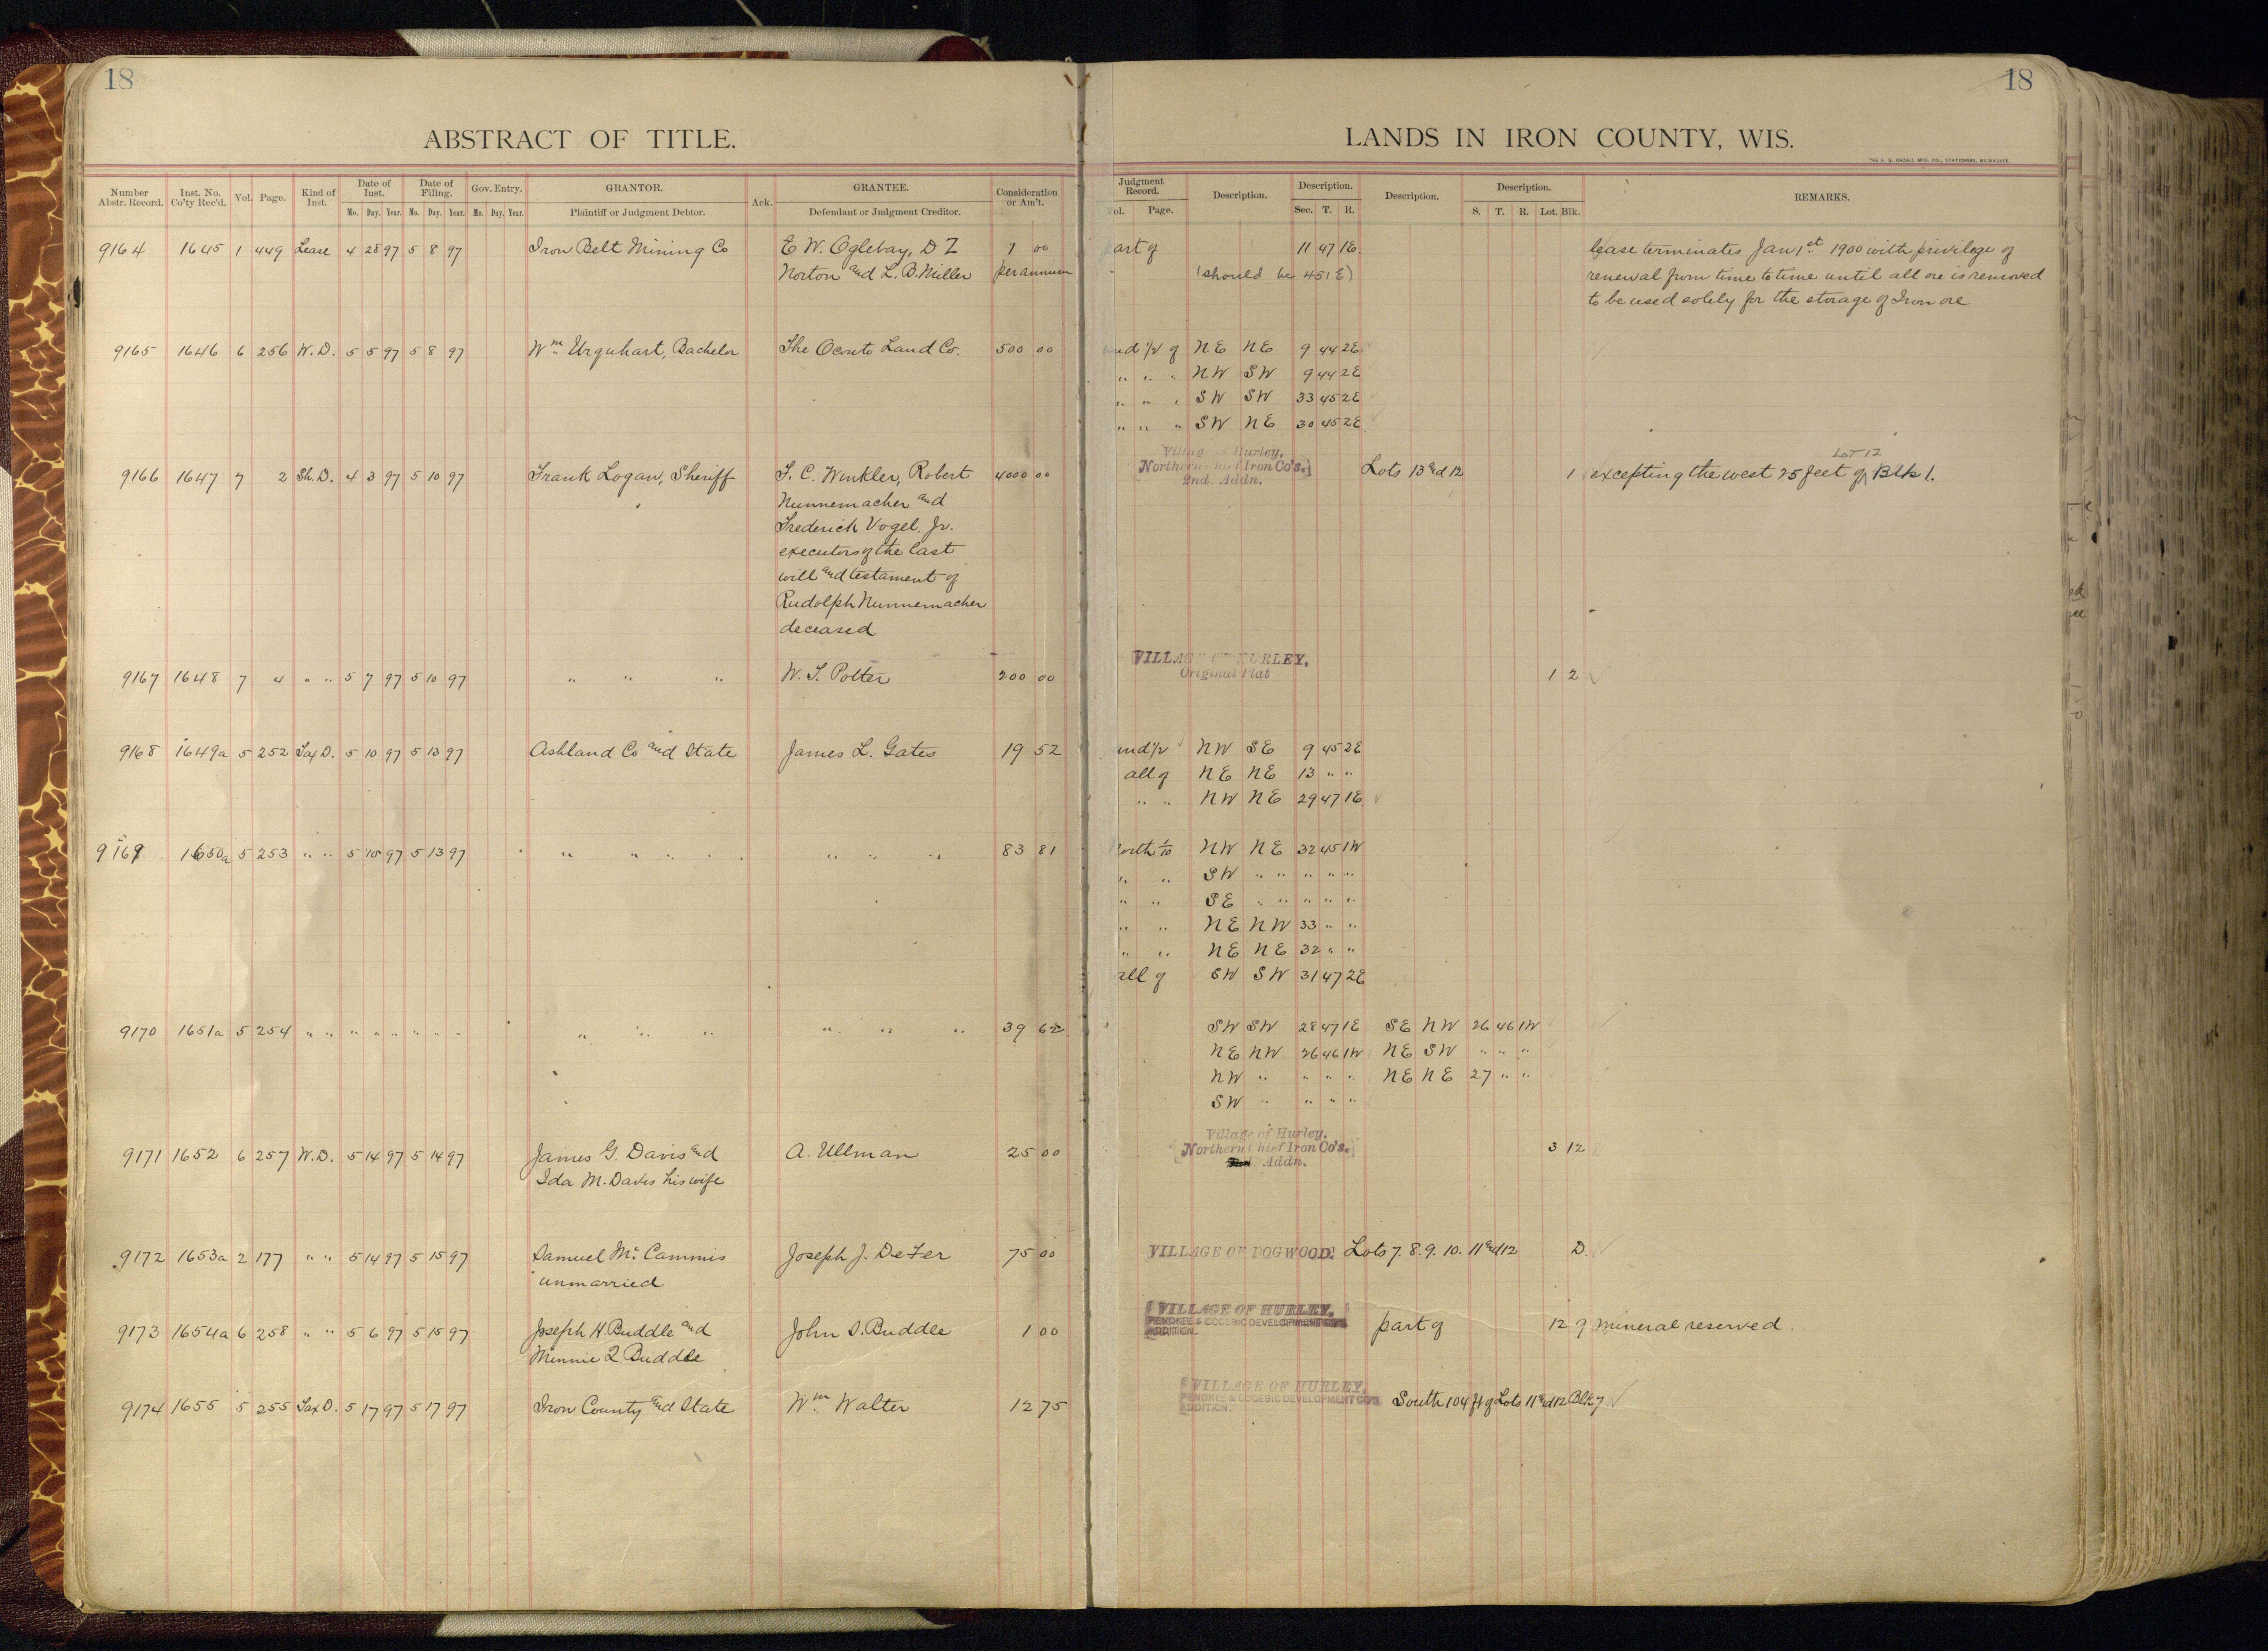 18
18
ABSTRACT OF TITLE.
LANDS IN IRON COUNTY, WIS.
THE H. G. RAZALL MFG. CO., STATIONERS, MILWAUKEE.
Number Abstr. Record. Inst. No. Co'ty Rec'd. Vol. Page. Kind of Inst. Date of Inst. Date of Filing. Gov. Entry. GRANTOR. Ack. GRANTEE. Consideration or Am't. Judgment Record. Description. Description. Description. Description. REMARKS.
Mo. Day. Year. Mo. Day. Year. Mo. Day. Year. Plaintiff or Judgment Debtor. Defendant or Judgment Creditor. Vol. Page. Sec. T. R. S. T. R. Lot. Blk.
9164 1645 1 449 Lease 4 28 97 5 8 97 Iron Belt Mining Co E. W. Oglebay, D Z 1 00 part of 11 47 1E. lease terminates Jan 1st 1900 with privilege of
Norton and L. B. Miller per annum (should be 45 1E) renewal from time to time until all ore is removed
to be used solely for the storage of Iron ore
9165 1646 6 256 W. D. 5 5 97 5 8 97 Wm. Urquhart, Bachelor The Oconto Land Co. 500 00 und 1/2 of NE NE 9 44 2E
" " " NW SW 9 44 2E
" " " SW SW 33 45 2E
" " " SW NE 30 45 2E
9166 1647 7 2 Sh. D. 4 3 97 5 10 97 Frank Logan, Sheriff F. C. Winkler, Robert 4000 00 Village of Hurley. Northern Chief Iron Co's. 2nd. Addn. Lots 13 and 12 1 excepting the west 25 feet of LOT 12 Blk 1.
Nunnemacher and
Frederich Vogel. Jr.
executors of the last
will and testament of
Rudolph Nunnemacher
deceased
9167 1648 7 4 " " 5 7 97 5 10 97 " " " W. S. Potter 200 00 VILLAGE OF HURLEY. Original Plat 1 2
9168 1649a 5 252 Tax D. 5 10 97 5 13 97 Ashland Co and State James L. Gates 19 52 und 1/2 NW SE 9 45 2E
all of NE NE 13 " "
" " NW NE 29 47 1E
9169 1650a 5 253 " " 5 10 97 5 13 97 " " " " " " " 83 81 North 1/10 NW NE 32 45 1W
" " SW " " " " "
" " SE " " " " "
" " NE NW 33 " "
" " NE NE 32 " "
all of SW SW 31 47 2E
9170 1651a 5 254 " " " " " " " " " " " " " " 39 62 SW SW 28 47 1E SE NW 26 46 1W
NE NW 26 46 1W NE SW " " "
NW " " " " NE NE 27 " "
SW " " " "
9171 1652 6 257 W. D. 5 14 97 5 14 97 James G. Davis and A. Ullman 25 00 Village of Hurley. Northern Chief Iron Co's. Addn. 3 12
Ida M. Davis his wife
9172 1653a 2 177 " " 5 14 97 5 15 97 Samuel Mc Cammis Joseph J. DeFer 75 00 VILLAGE OF DOGWOOD. Lots 7. 8. 9. 10. 11 and 12 D.
unmarried
9173 1654a 6 258 " " 5 6 97 5 15 97 Joseph H. Buddle and John D. Buddle 1 00 VILLAGE OF HURLEY. PENOKEE & GOGEBIC DEVELOPMENT CO'S ADDITION. part of 12 9 mineral reserved.
Minnie Q Buddle
9174 1655 5 255 Tax D. 5 17 97 5 17 97 Iron County and State Wm. Walter 12 75 VILLAGE OF HURLEY. PENOKEE & GOGEBIC DEVELOPMENT CO'S ADDITION. South 104 ft of Lots 11 and 12 Blk 7